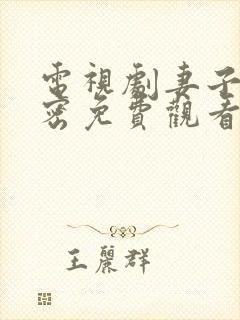 電視劇妻子
密免費觀看
王麗群